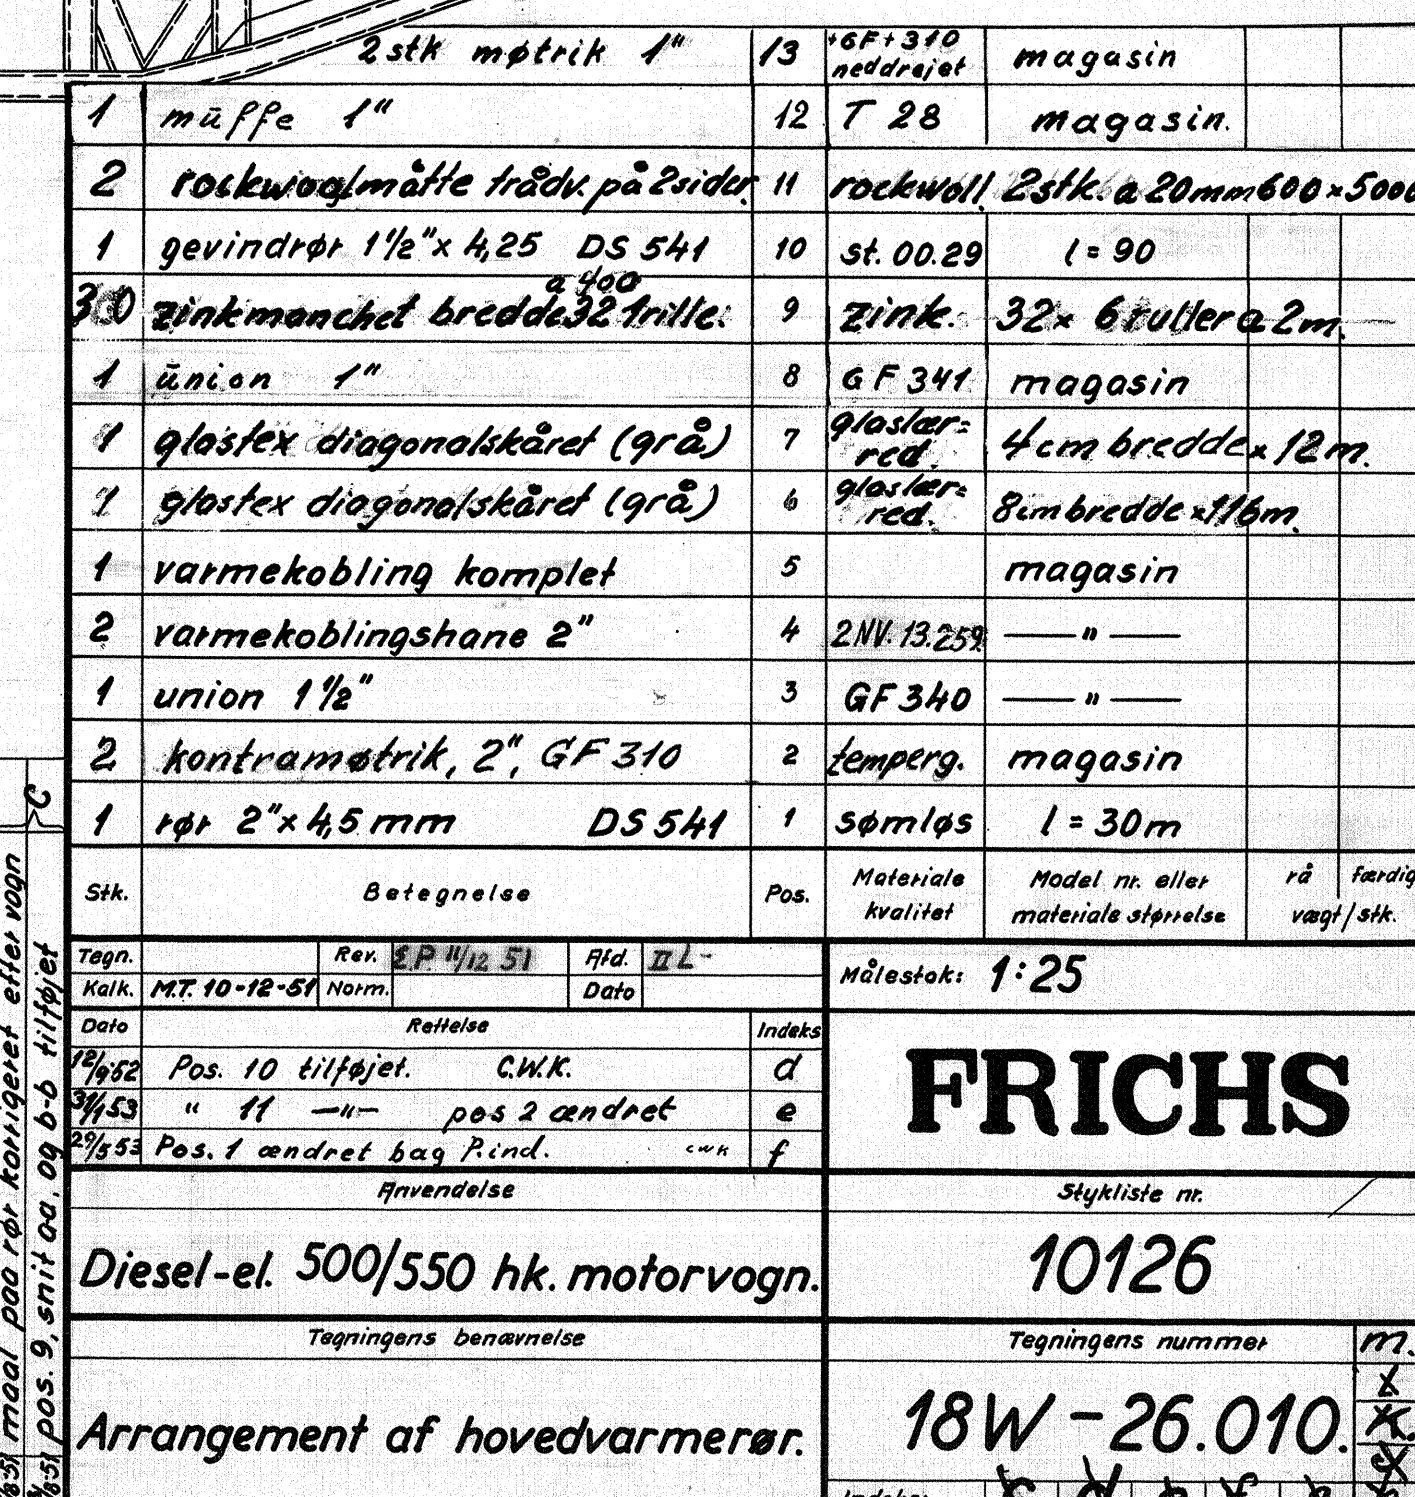 2 stk møtrik 1" 13 +GF+310 neddrejet magasin
1 müffe 1" 12 T 28 magasin.
2 rockwoolmåtte trådv. på 2 sider. 11 rockwoll. 2stk. a 20mm 600 x 5000
1 gevindrør 1 1/2" x 4,25 DS 541 10 st. 00.29 l = 90
a 400
30 zinkmanchet bredde 32 1 rille. 9 zink. 32 x 6 ruller a 2m.
1 ünion 1" 8 GF 341 magasin
1 glastex diagonalskåret (grå) 7 glaslær= red. 4 cm bredde x 12 m.
1 glastex diagonalskåret (grå) 6 glaslær= red. 8 cm bredde x 116 m.
1 varmekobling komplet 5 magasin
2 varmekoblingshane 2" 4 2NV. 13.259. — " —
1 union 1 1/2" 3 GF 340 — " —
2 kontramøtrik, 2", GF 310 2 temperg. magasin
1 rør 2" x 4,5 mm DS 541 1 sømløs l = 30 m
Stk. Betegnelse Pos. Materiale kvalitet Model nr. eller materiale størrelse rå færdig
vægt / stk.
Tegn. Rev. E.P. 11/12 51 Afd. II L-
Kalk. M.T. 10-12-51 Norm. Dato
Målestok: 1:25
Dato Rettelse Indeks
12/9 52 Pos. 10 tilføjet. C.W.K. d
31/1 53 " 11 —"— pos 2 ændret e
29/5 53 Pos. 1 ændret bag P.ind. cwk f
FRICHS
Anvendelse
Diesel-el. 500/550 hk. motorvogn.
Stykliste nr.
10126
Tegningens benævnelse
Arrangement af hovedvarmerør.
Tegningens nummer m.
18W - 26.010.
C
maal paa rør korrigeret efter vogn
pos. 9, snit aa. og b-b tilføjet